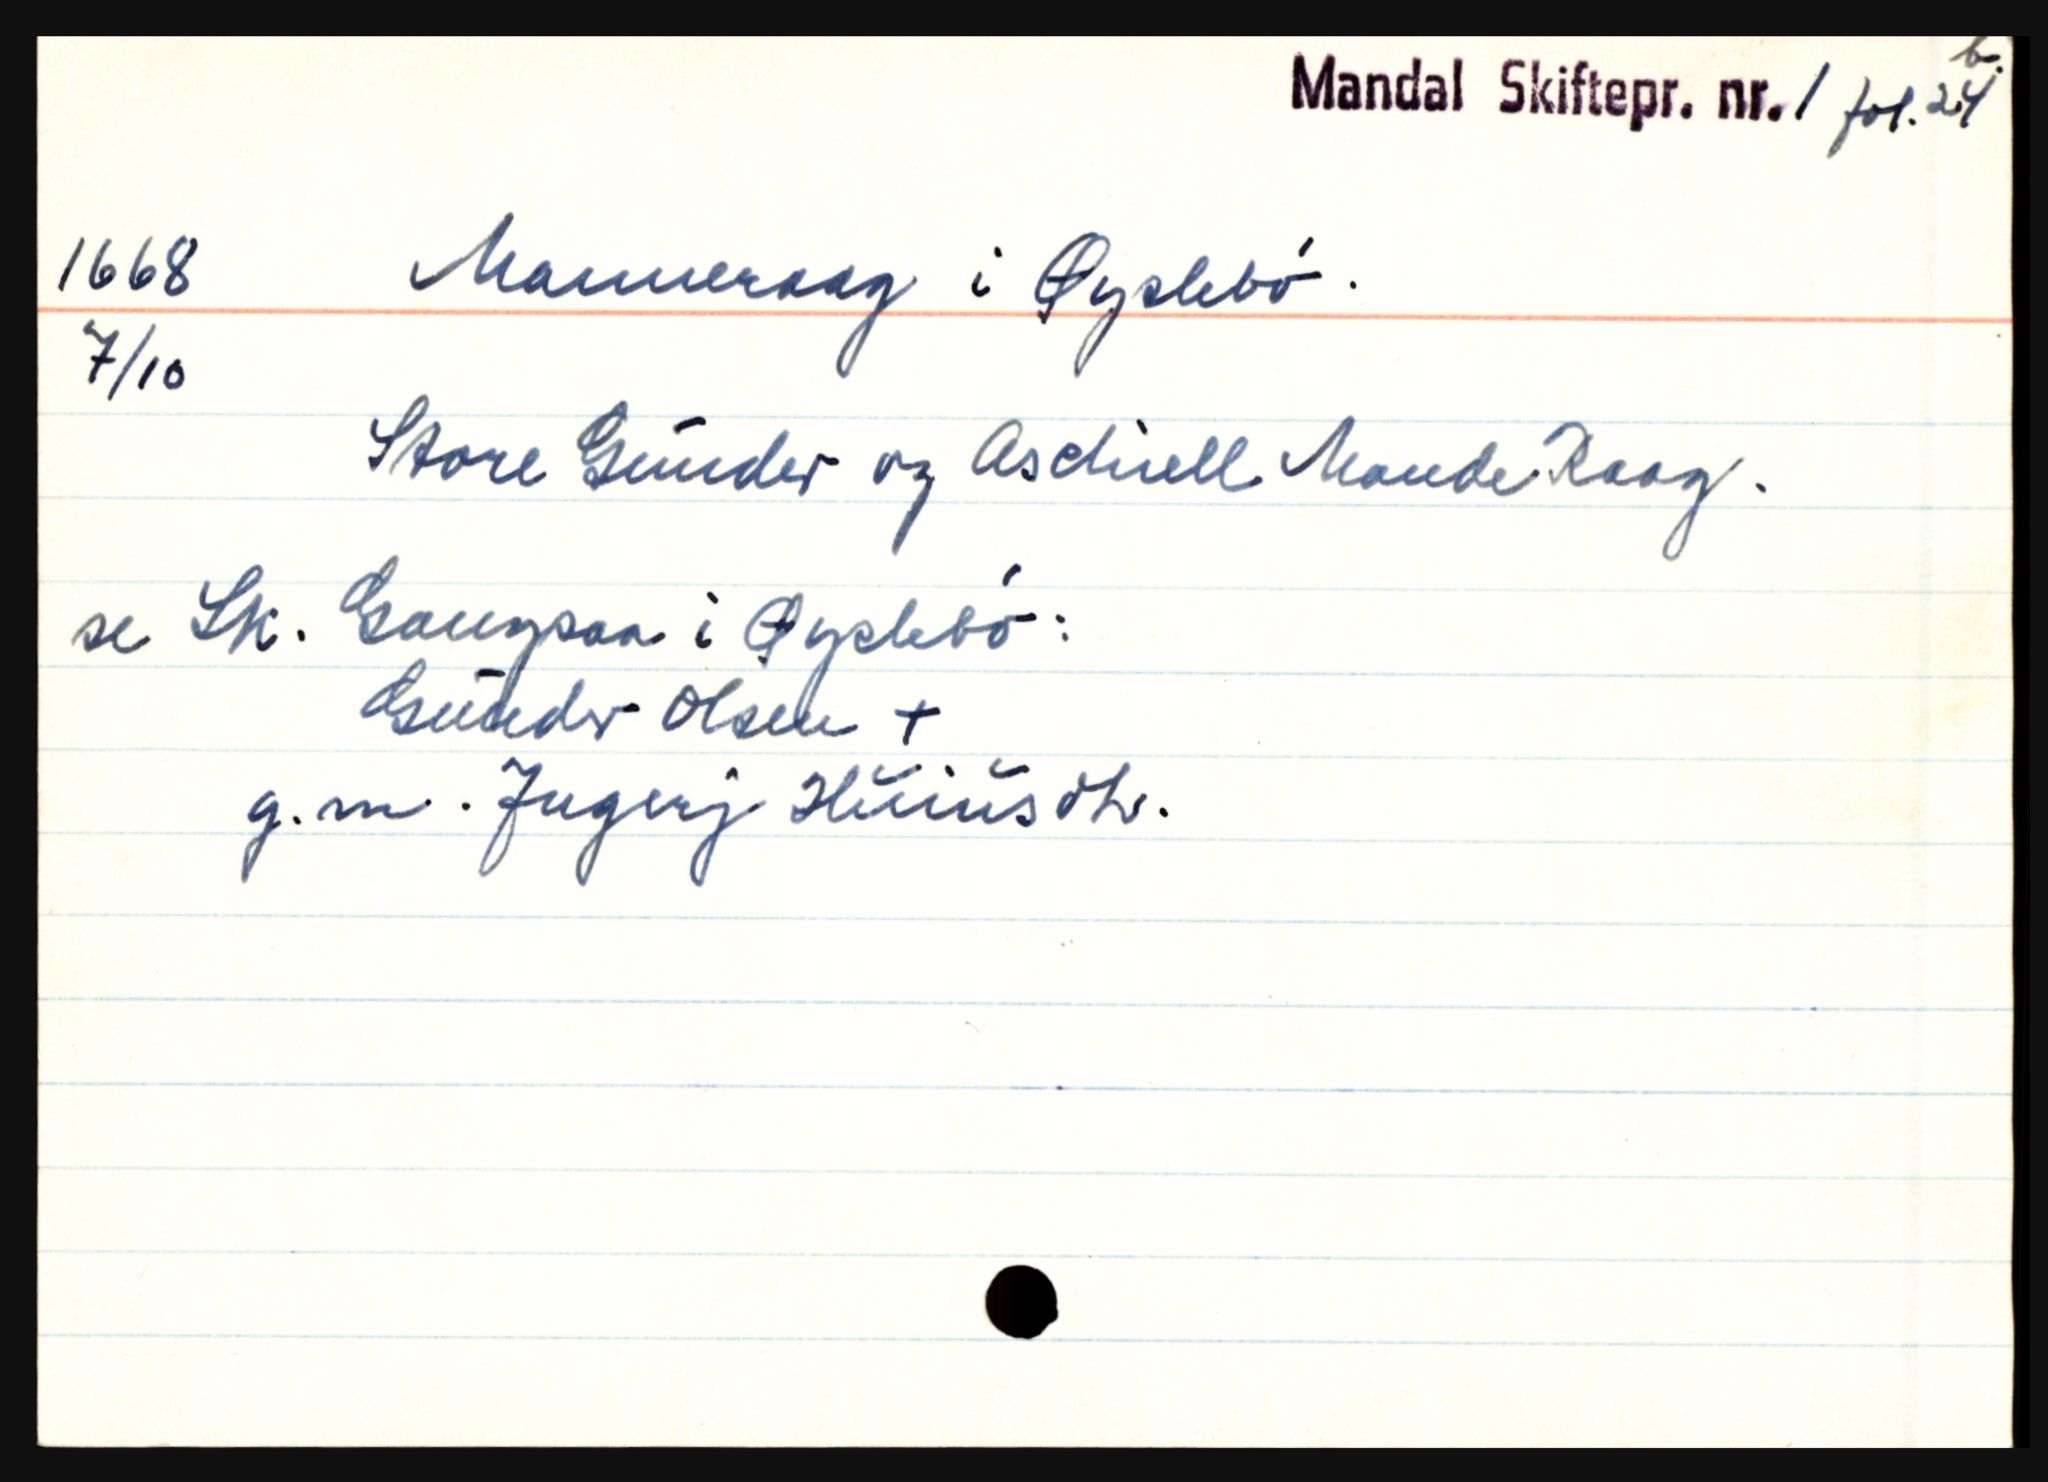 Mandal Skiftepr. nr. 1 fol. 24 b.
1668 Manneraag i Øyslebø.
7/10
Store Gunder og Aschiell Mande Raag.
se Sk. Gangsaa i Øyslebø:
Gunder Olsen +
g. m. Ingerj dtr.